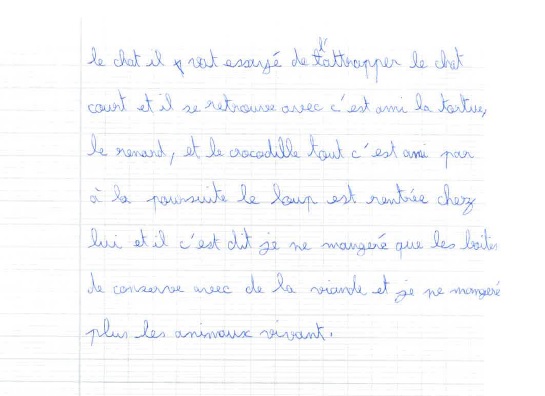 le chat il vat essayé de l'attrapper le chat
court et il se retrouve avec c'est ami la tortue,
le renard, et le crocodille tout c'est ami par
à la poursuite le loup est rentrée chez
lui et il c'est dit je ne mangeré que les boites
de conserve avec de la viande et je ne mangeré
plus les animaux vivant.